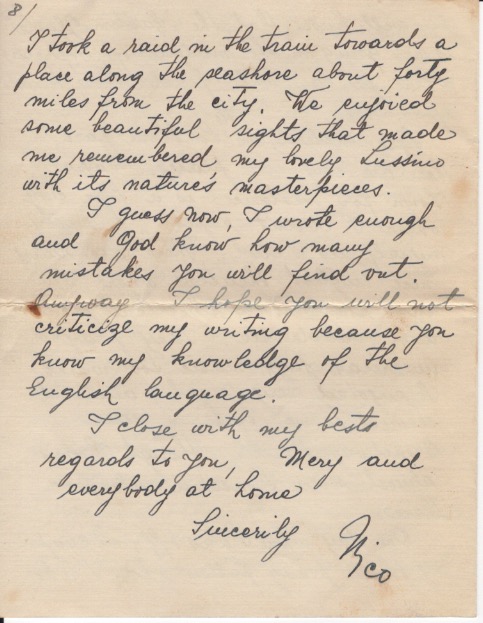 8/
I took a raid in the train towards a
place along the seashore about forty
miles from the city. We enjoied
some beautiful sights that made
me remembered my lovely Lussino
with its nature's masterpieces.
I guess now, I wrote enough
and God know how many
mistakes you will find out.
Anyway I hope you will not
criticize my writing because you
know my knowledge of the
English language.
I close with my bests
regards to you, Mery and
everybody at home
Sincerily
Nico